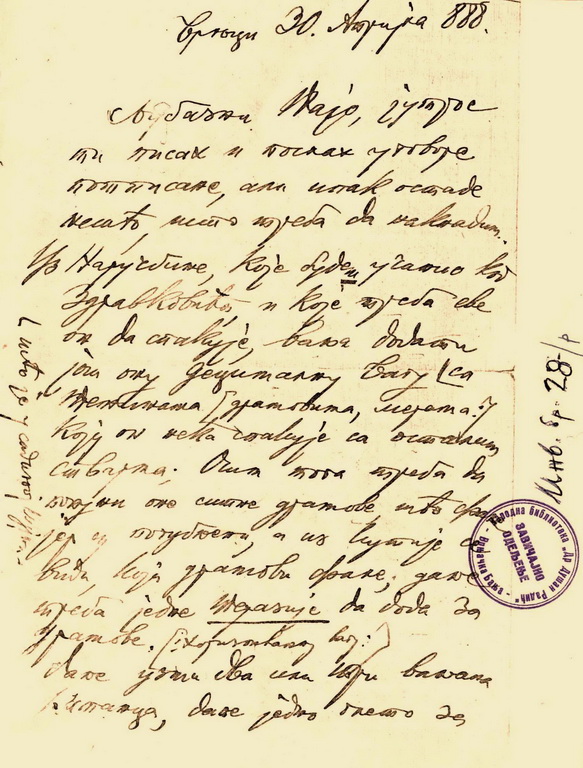 30. Априја 888.
Љубазни Пајо, јутрос
ти писах и послах уговоре
потписане, али ипак остаде
нешто, што треба да накнадим.
Уз Наруџбине, које будем учинио код
Здравковића, и које треба све
он да спакује, ваља додати
још ону децималну вагу (са
, мерама:)
коју он нека спакује са осталим
стварма. Осим тога треба да
оне ситне драмове што
јер су погубљени, а из кутије се
види, који драмови фале; даље
треба једне теразије да дода за
драмове.
даље узти два или три ваљана
, даље једно онето за
Инв. бр. 28/р
Народна библиотека "Др Душан Радић" Врњачка Бања
ЗАВИЧАЈНО
ОДЕЉЕЊЕ